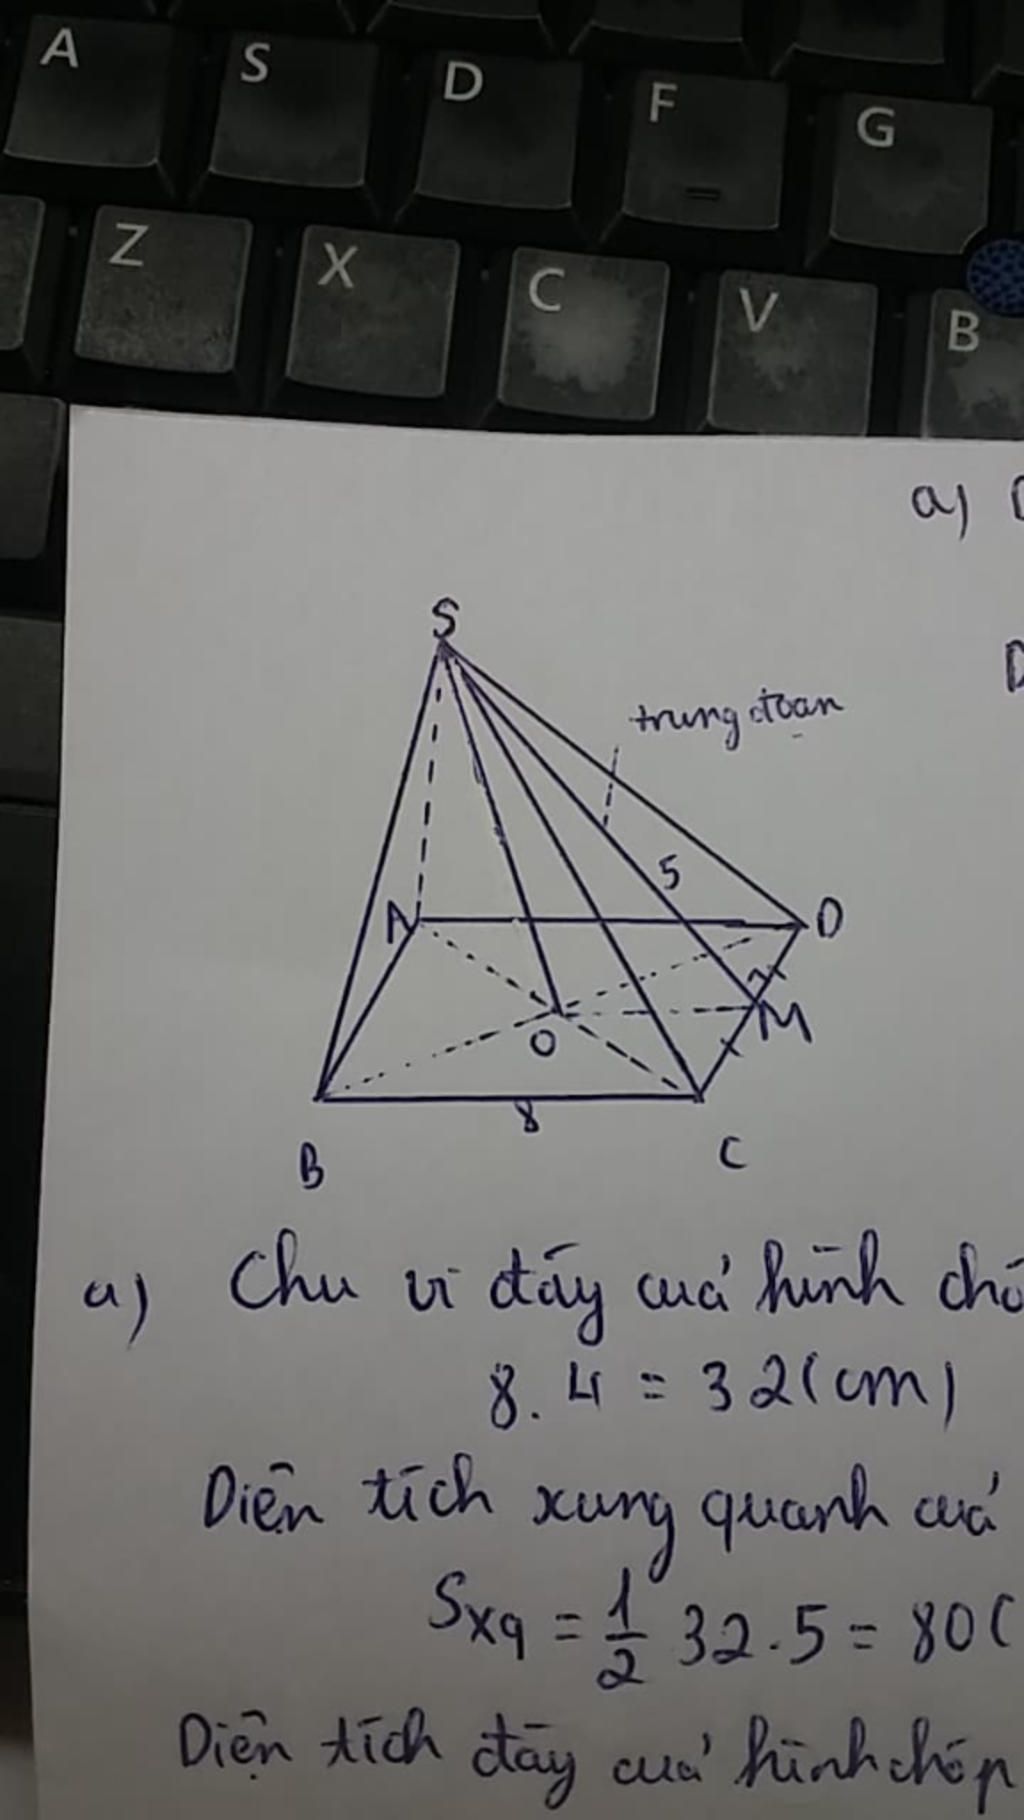 A S D F G
Z X C V B
a)
S
trung đoạn
5
A D
M
O
8
B C
a) Chu vi đáy của hình
8.4 = 32 (cm)
Diện tích xung quanh của
Sxq = 1/2 32.5 = 80 (
Diện tích đáy của hình chóp